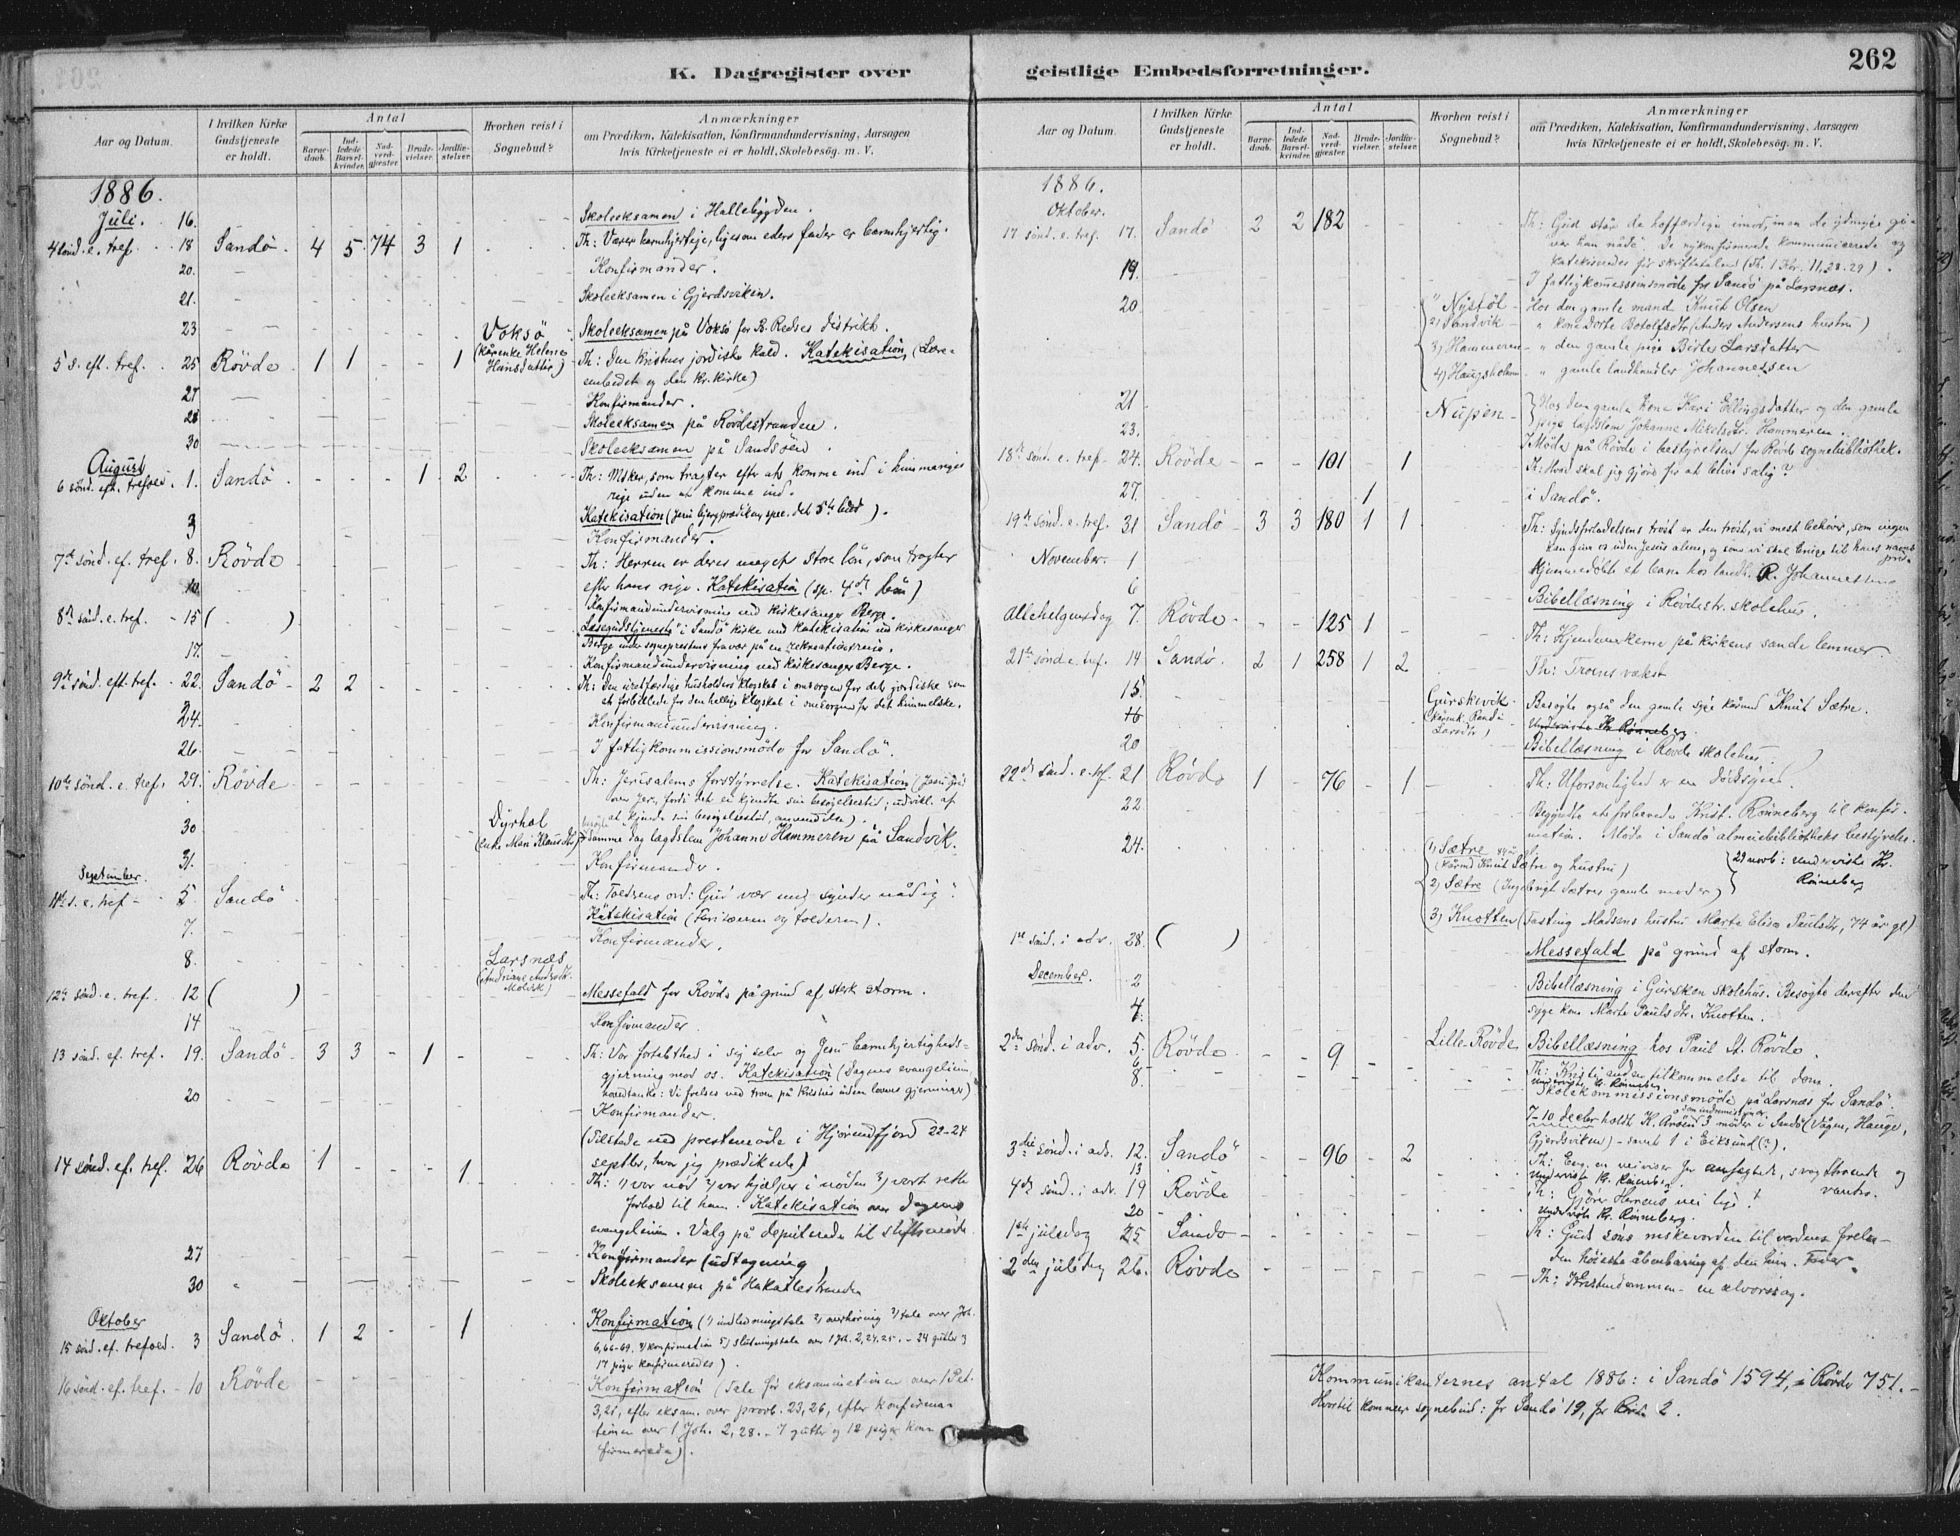 262
K. Dagregister over
Aar og Datum.
I hvilken Kirke Gudstjeneste er holdt.
Antal
Barnedaab.
Indledede Barselkvinder.
Nadverdgjæster
Brudevielser.
Jordfæstelser.
Hvorhen reist i Sognebud?
Anmærkninger
om Prædiken, Katekisation, Konfirmandundervisning, Aarsagen
hvis Kirketjeneste ei er holdt, Skolebesøg. m. V.
1886.
Juli. 16. Skoleeksamen i Hallebygden.
4 sönd. e. tref. 18 Sandö 4 5 74 3 1 Th: Værer barmhjertige, ligesom eders fader er barmhjertig.
20. Konfirmander.
21. Skoleeksamen i Gjerdsviken.
23 Voksö Skoleeksamen på Voksö for B. Redses distrikt.
(kårenke Helene Hansdatter)
5 s. eft. tref. 25 Rövde 1 1 - - 1 Th: Den kristnes jordiske kald. Katekisation (Læreembedet og den kr. kirke)
27. Konfirmander.
28 Skoleeksamen på Rövdestranden.
30 Skoleeksamen på Sandsöen.
August
6 sönd. eft. trefold. 1. Sandö 1 2 Th: som tragter efter at komme ind i himmeriges
rige uden at komme ind.
Katekisation (Jesu bjergprædiken, spec. det 5te bud).
3 Konfirmander.
7de sönd. ef. tref. 8. Rövde Th: Herren er deres meget store lön, som tragter
efter hans rige. Katekisation (sp. 4de bön)
10. Konfirmandundervisning ved kirkesanger Berge
8de sönd. e. tref. - 15 ( ) Læsegudstjeneste i Sandö kirke med katekisation ved kirkesanger
Berge under sogneprestens fravær på en rekreationsreise.
17. Konfirmandundervisning ved kirkesanger Berge.
9de sönd. eft. tref. - 22. Sandö - 2 2 Th: Den uretfærdige husholders klogskab i omsorgen for det jordiske som
et forbillede for den hellige klogskab i omsorgen for det himmelske.
24. Konfirmandundervisning.
26. I fattigkommissionsmöde for Sandö.
10de sönd. e. tref. 29. Rövde Th: Jerusalems forstyrrelse. Katekisation (Jesu gråd
over Jer., fordi det ei kjendte sin besögelsestid; udvikl. af
at kjende sin besögelsestid, anvendelse).
30 Dyrhol (enke Mari Klausdtr) samme dag lagdslem Johanne Hammeren på Sandvik.
31. Konfirmander.
September.
11te s. e. tref - 5 Sandö Th: Tolderens ord: Gud vær mig synder nådig!
Katekisation (Farisæeren og tolderen).
7. Konfirmander.
8. Larsnæs
12te sönd. e. tref. 12 ( ) Messefald for Rövde på grund af sterk storm.
14 Konfirmander.
13 sönd. ef. tref. 19. Sandö 3 3 - 1 - Th: Vor fortabthed i sig selv og Jesu barmhjertighedsgjerning
mod os. Katekisation (Dagens evangelium,
hovedtanke: Vi frelses ved troen på Kristus uden lovens gjerninger)
20 Konfirmander.
(Tilstede ved prestemöde i Hjörundfjord 22-24
septbr, hvor jeg prædikede)
14 sönd. ef. tref. 26 Rövde 1 - - - 1 Th: 1) vor nöd 2) vor hjælper i nöden 3) vort rette
forhold til ham. Katekisation over dagens
evangelium. Valg på deputerede til stiftsmöde
27 Konfirmander (udtagning)
30 Skoleeksamen på Hakallestranden
Oktober
15 sönd. ef. trefold. 3 Sandö 1 2 - - 1 Konfirmation (1) indledningstale 2) overhöring 3) tale over Joh.
6, 66-69. 4) konfirmation 5) slutningstale over 1 Joh. 2, 24. 25. - 24 gutter og
17 piger konfirmeredes).
16 sönd. ef. tref. - 10 Rövde Konfirmation (Tale för eksaminationen over 1 Pet.
3, 21, efter eksam. over provb. 23, 26, efter konfirmationen
over 1 Joh. 2, 28. - 7 gutter og 12 piger konfirmerede).
geistlige Embedsforretninger.
Aar og Datum.
I hvilken Kirke Gudstjeneste er holdt.
Antal
Barnedaab.
Indledede Barselkvinder.
Nadverdgjæster
Brudevielser.
Jordfæstelser.
Hvorhen reist i Sognebud?
Anmærkninger
om Prædiken, Katekisation, Konfirmandundervisning, Aarsagen
hvis Kirketjeneste ei er holdt, Skolebesøg. m. V.
1886.
Oktober.
17 sönd. e. tref. 17. Sandö 2 2 182 Th: Gud står de hoffærdige imod, men de ydmyge giver
han nåde. De nykonfirmerede kommunicerede og
katekiseredes för skriftetalen (Th. 1 Kor. 11, 28. 29).
19. I fattigkommissionsmöde for Sandö på Larsnæs.
20 1) Nystöl - Hos den gamle mand Knut Olsen
2) Sandvik - " kone Dorte Botolfsdtr (Anders Andersens hustru)
3) Hammeren - " den gamle pige Birte Larsdatter
4) Haugsholmen " gamle landhandler Johannessen
21 Nupen - Hos den gamle kone Kari Ellingsdatter og den gamle
pige lagdslem Johanne Mikelsdtr. Hammeren.
23. I Möde på Rövde i bestyrelsen for Rövde sognebibliothek.
18de sönd. e. tref. 24. Rövde - - 101 - 1 Th: Hvad skal jeg gjöre for at blive salig?
27. 1 i Sandö.
19de sönd. e. tref. 31 Sandö 3 3 180 1 1 Th: Syndsforladelsens tröst er den tröst, vi mest behöve, som ingen
kan give os uden Jesus alene, og som vi skal bruge til hans navns pris.
November. 1 Hjemmedöbte et barn hos landh. R. Johannessen
6 Bibellæsning i Rövdestr. skolehus.
Allehelgensdag 7. Rövde - - 125 1 Th: Kjendemerkerne på kirkens sande lemmer
21de sönd e. tref. 14 Sandö. 2 1 258 1 2 Th: Troens vækst
15 Gurskevik (kårenk. Randi Larsdtr) Besögte også den gamle syge kårmd Knut Sætre.
16 Underviste Kr. Rönneberg.
20 Bibellæsning i Rövde skolehus.
22de sönd. e. tref. 21 Rövde 1 - 76 - 1 Th: Uforsonlighed er en dödssynd.
22 Begyndte at forberede Krist. Rönneberg til konfirmation.
Möde i Sandö almuebibliotheks bestyrelse.
24. 1) Sætre (kårmd Knut Sætre og hustru) 29 novb: underviste Kr. Rönneberg
2) Sætre (Ingebrigt Sætres gamle moder)
3) Knotten (Rasting Madsens hustru Marte Elise Paulsdtr, 74 år gl)
1ste sönd. i adv. 28. ( ) Messefald på grund af storm.
December. 2 Bibellæsning i Gursken skolehus. Besögte derefter den
syge kone Marte Paulsdtr. Knotten.
4. Lille-Rövde Bibellæsning hos Paul St. Rövde.
2den sönd. i adv. 5. Rövde - - 9 - - Th: Kristi anden tilkommelse til dom.
6 Underviste Kr. Rönneberg.
8. Skolekommissionsmöde på Larsnæs for Sandö.
7-10 decbr holdt K. 3 möder i Sandö (Vågen, Hauge,
Gjerdsviken) - samt 1 i Eiksund (?).
3die sönd. i adv. 12. Sandö - - 96 - 2 Th: Evg. en veiviser for anfægtede, svagttroende og vantro.
13 Underviste Kr. Rönneberg.
4de sönd. i adv. 19 Rövde Th: Gjörer Herrens vei lige!
20 Underviste Kr. Rönneberg.
1ste juledag 25 Sandö Th: Guds söns til verdens frelse -
den höieste åbenbaring af den him. Fader.
2den juledag 26. Rövde Th: Kristendommen - en alvorssag.
Kommunikanternes antal 1886: i Sandö 1594, i Rövde 751.
Hvortil kommer sognebud: for Sandö 19, for Rövde 2.